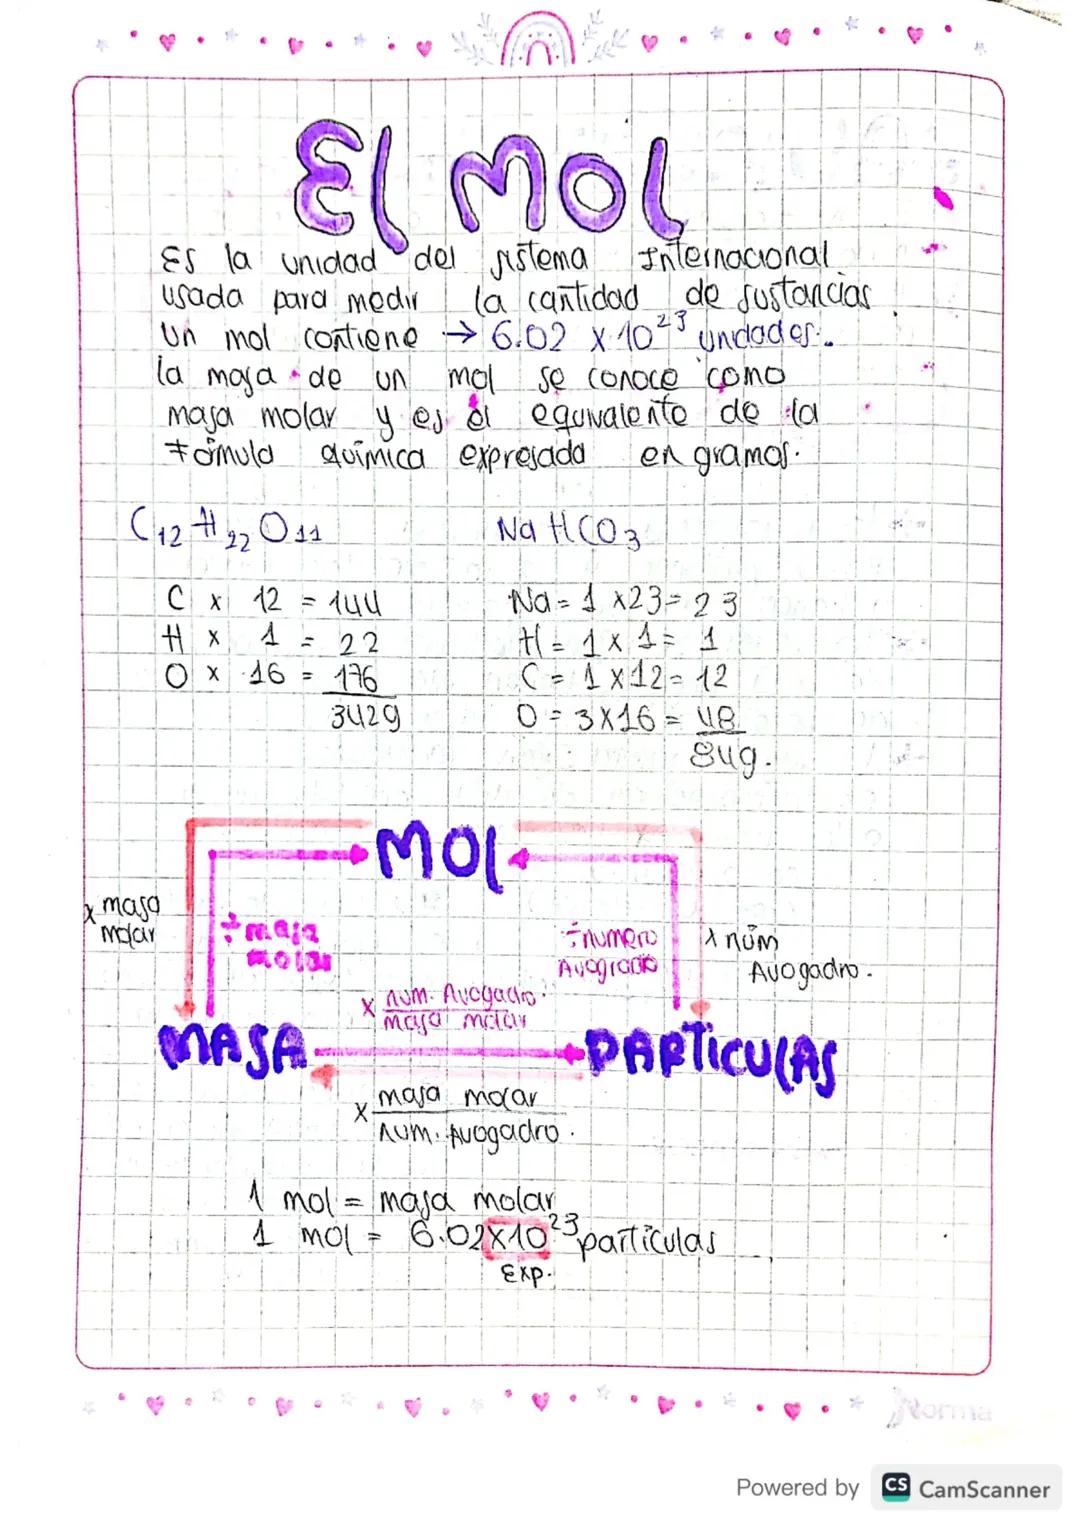 El MOL
Es la unidad del sistema Internacional
usada para medir la cantidad de sustancias
Un mol contiene → 6.02 x 10²³ undades.
la masa de un mol se conoce como
masa molar y es el equivalente de la
fómula química expresada en gramos.
C₁₂ H₂₂ O₁₁
Na H CO₃
C x 12 = 144
H x 1 = 22
O x 16 = 176
342g
Na = 1 x23 = 23
H = 1 x 1 = 1
C = 1 x12 = 12
O = 3x16 = 48
84g.
MOL
x masa
molar
÷ masa
molar
÷ numero
Avogrado
x núm
Avogadro.
x num. Avogadro.
masa molar
MASA
PARTICULAS
x masa molar
num. Avogadro.
1 mol = masa molar
1 mol = 6.02x10²³ particulas
Exp.
Norma
Powered by CS CamScanner